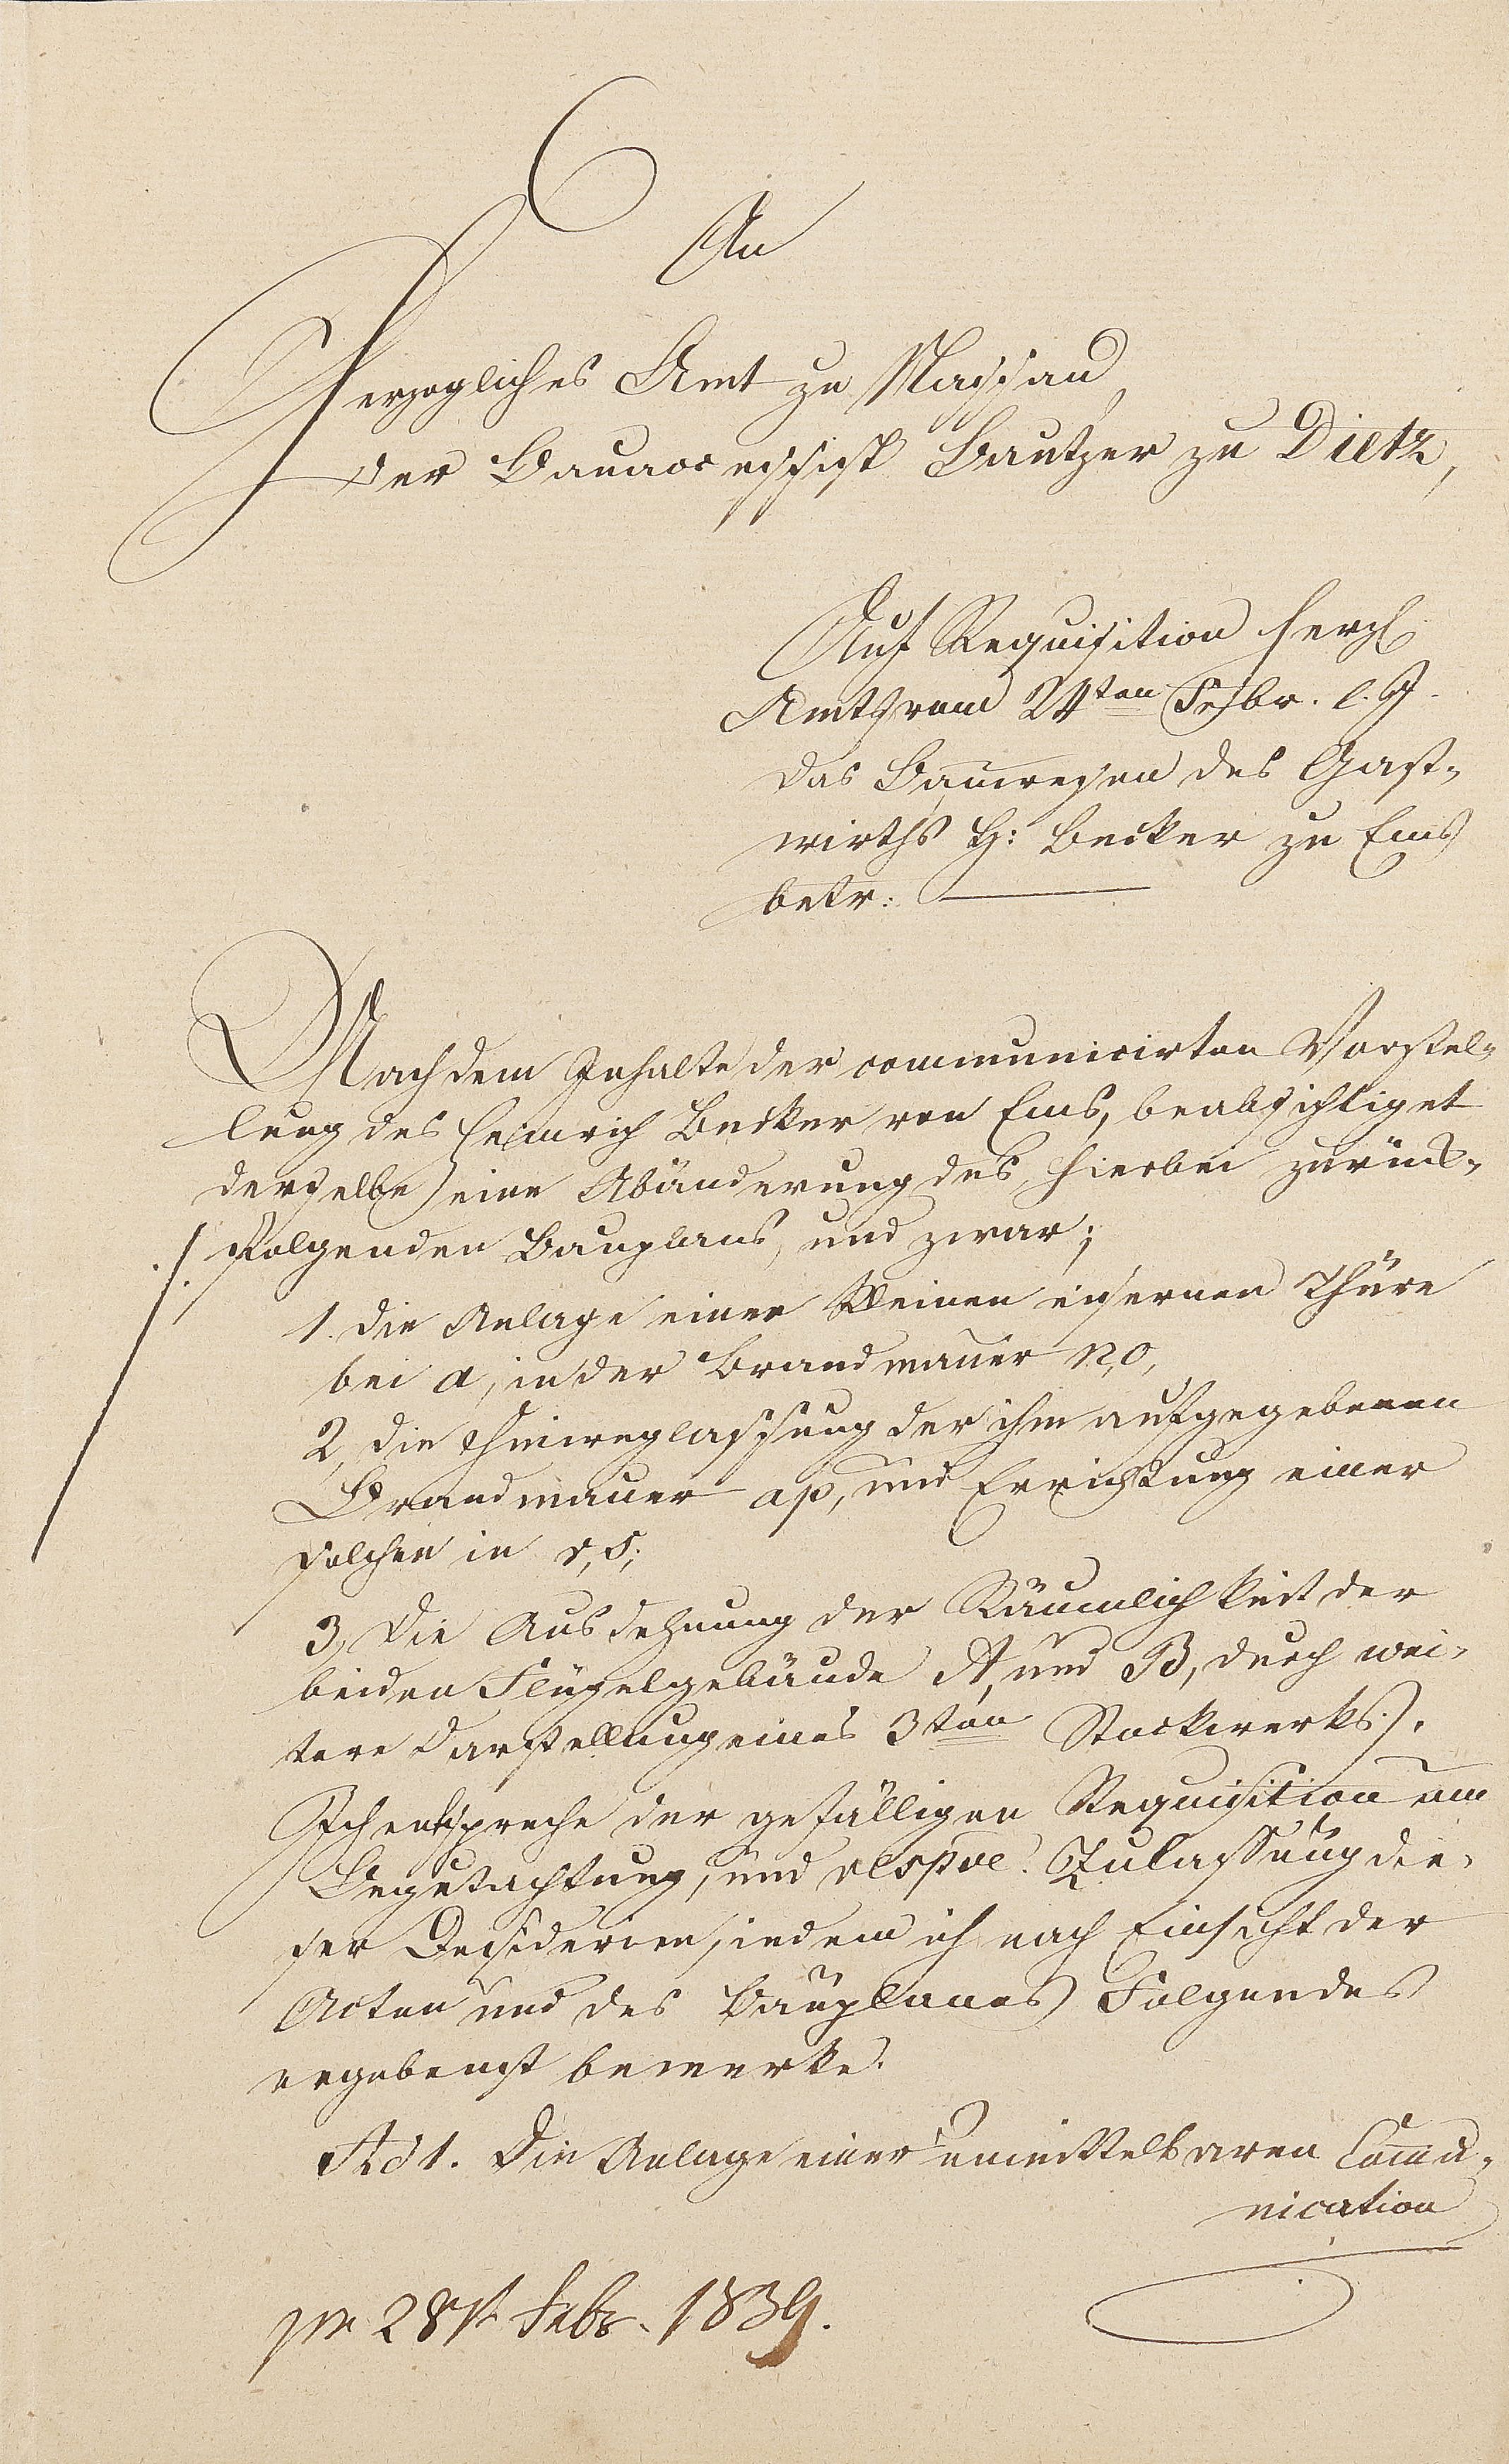 An
Herzogliches Amt zu Nassau,
der Bauaccessist Bautzer zu Dietz,
Auf Requisition herzl
Amts vom 24ten Febr. l. J.
das Bauwesen des Gast-
wirths H: Becker zu Ems
betr:
Nach dem Inhalte der communicirten Vorstel-
lung des Heinrich Becker von Ems, beabsichtiget
derselbe eine Abänderung des, hierbei zurück-
./. folgenden Bauplans, und zwar;
1. die Anlage einer kleinen eisernen Thüre
bei a, in der Brandmauer n,o,
2, die Hinweglassung der ihm aufgegebenen
Brandmauer op, und Errichtung einer
solchen in r,s;
3, Die Ausdehnung der Räumlichkeit der
beiden Flügelgebäude A, und B, durch wei-
tere Darstellung eines 3ten Stockwerks.
Ich entspreche der gefälligen Requisition um
Begutachtung, und respve. Zulassung die-
ser Desiderien, indem ich nach Einsicht der
Acten und des Bauplanes Folgendes
ergebenst bemerke.
Ad 1. Die Anlage einer unmittelbaren Commu-
nication
pr 28t Febr. 1839.